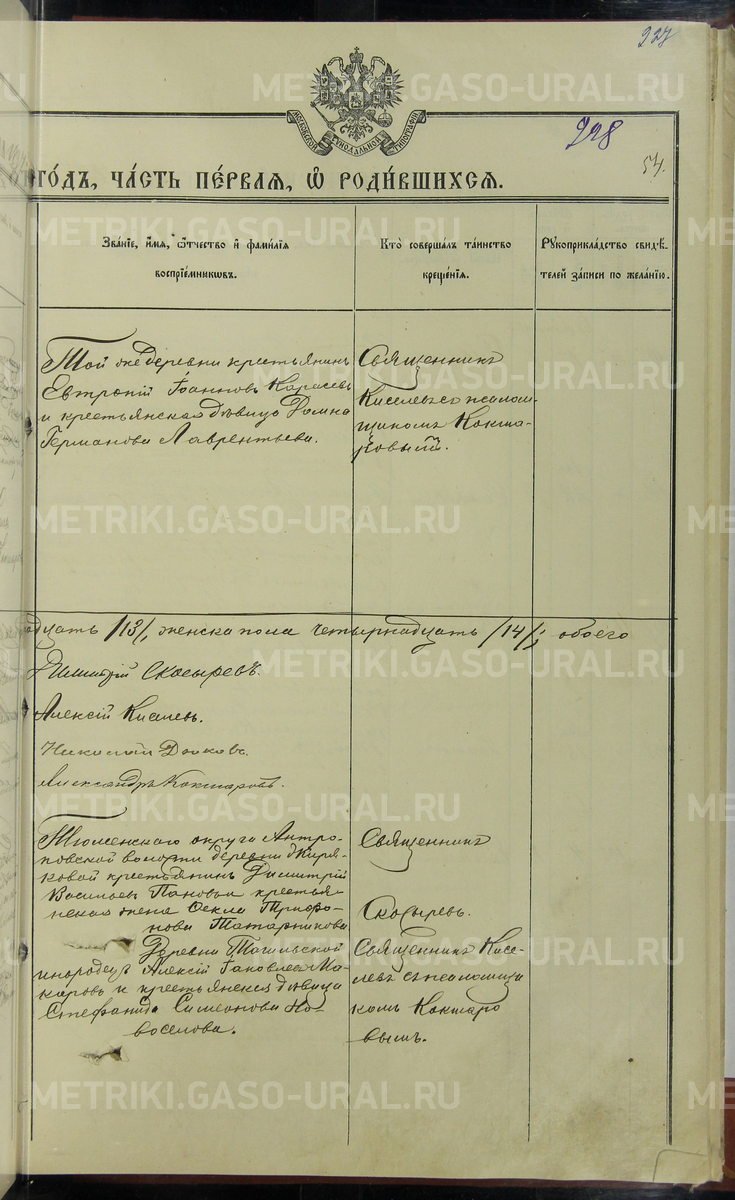 227
228
54.
МОСКОВСКОЙ СѴНОДАЛЬНОЙ ТИПОГРАФІИ
ГОДЪ, ЧАСТЬ ПЕРВАЯ, Ѡ РОДИВШИХСЯ.
Званіе, имя, ѻтчество и фамилія
воспріемниковъ.
Кто совершалъ таинство
крещенія.
Рукоприкладство свидѣ-
телей записи по желанію.
Той же деревни крестьянинъ
Евтропій Іоанновъ Карасевъ
и крестьянская дѣвица Домна
Германова Лаврентьева.
Священникъ
Киселевъ со псалом-
щикомъ Кокша-
ровымъ.
адцать /13/, женска пола четырнадцать /14/; обоего
Димитрій Скосыревъ.
Алексій Киселевъ.
Николай
Александръ Кокшаровъ.
Тюменскаго округа Антро-
повской волости деревни Жиря-
ковой крестьянинъ Димитрій
Васильевъ Пановъ и крестья-
нская жена Ѳекла Трифо-
нова Татарникова
Священникъ
Скосыревъ.
Деревни Тагильской
инородецъ Алексій Іаковлевъ Ма-
каровъ и крестьянская дѣвица
Стефанида Симеонова Но-
воселова.
Священникъ Кисе-
левъ съ псаломщи
комъ Кокшаро
вымъ.
METRIKI.GASO-URAL.RU